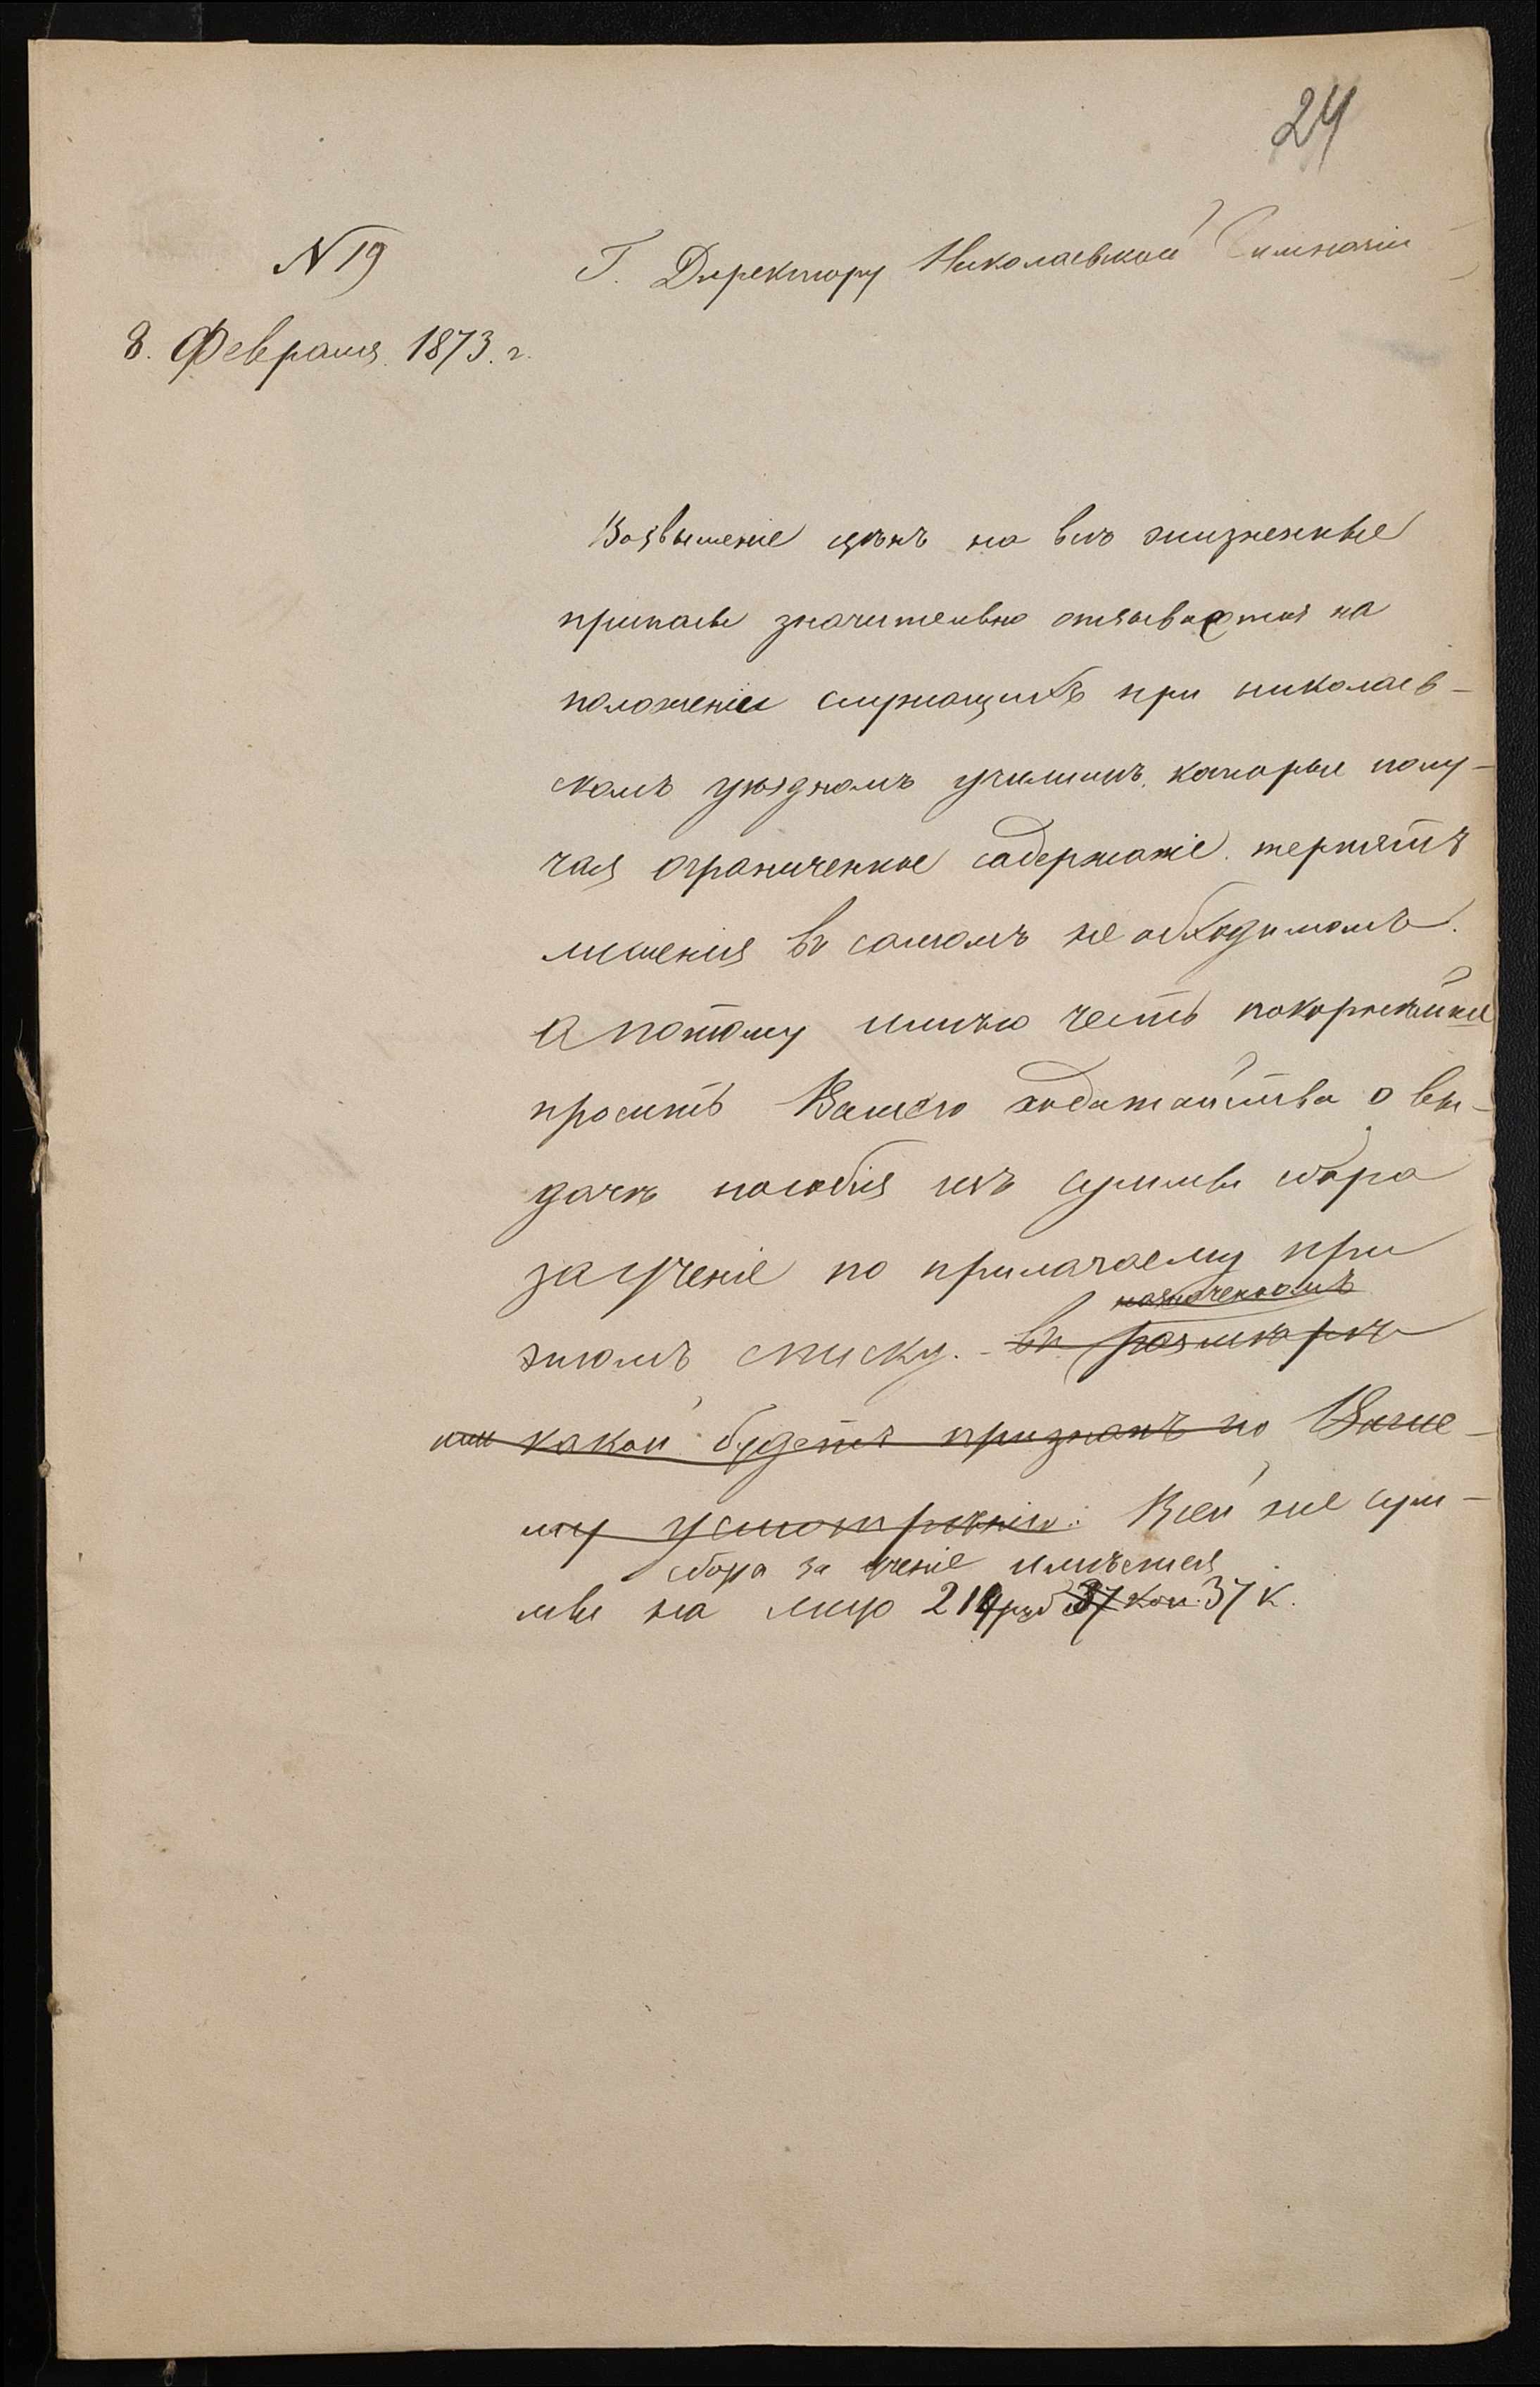 24
N 19
Г. Директору Николаевской Гимназіи
8. Февраля 1873. г.
Возвышеніе цѣнъ на всѣ жизненные
припасы значительно отзывается на
положеніи служащихъ при николаев-
скомъ уѣздномъ училищѣ, которые полу-
чая ограниченное содержаніе, терпятъ
лишенія въ самомъ необходимомъ.
А потому имѣю честь покорнѣйше
просить Вашего ходатайства о вы-
дачѣ пособія изъ суммы сбора
за ученіе по прилагаемому при
назначенномъ
этомъ списку. въ размѣрѣ
или какой будетъ признанъ по Ваше-
му усмотрѣнію. Всей же сум-
сбора за ученіе имѣется
мы на лицо 219 руб 37 коп. 37 к.